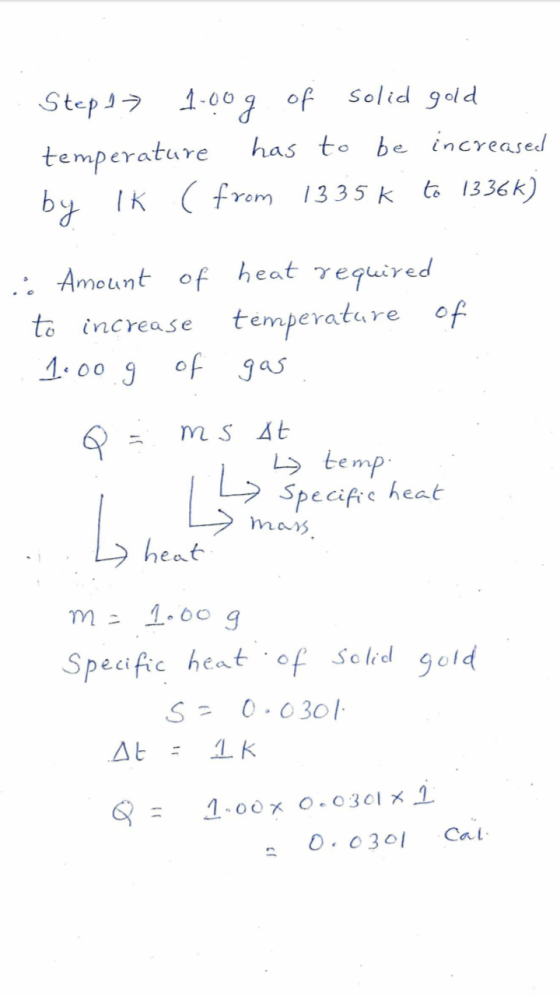 Step 1→ 1.00g of solid gold
temperature has to be increased
by 1K (from 1335K to 1336K)
∴ Amount of heat required
to increase temperature of
1.00 g of gas
Q = m s Δt
↳ temp.
↳ Specific heat
↳ mass.
↳ heat
m = 1.00 g
Specific heat of solid gold
S = 0.0301.
Δt = 1K
Q = 1.00 x 0.0301 x 1
= 0.0301 Cal.